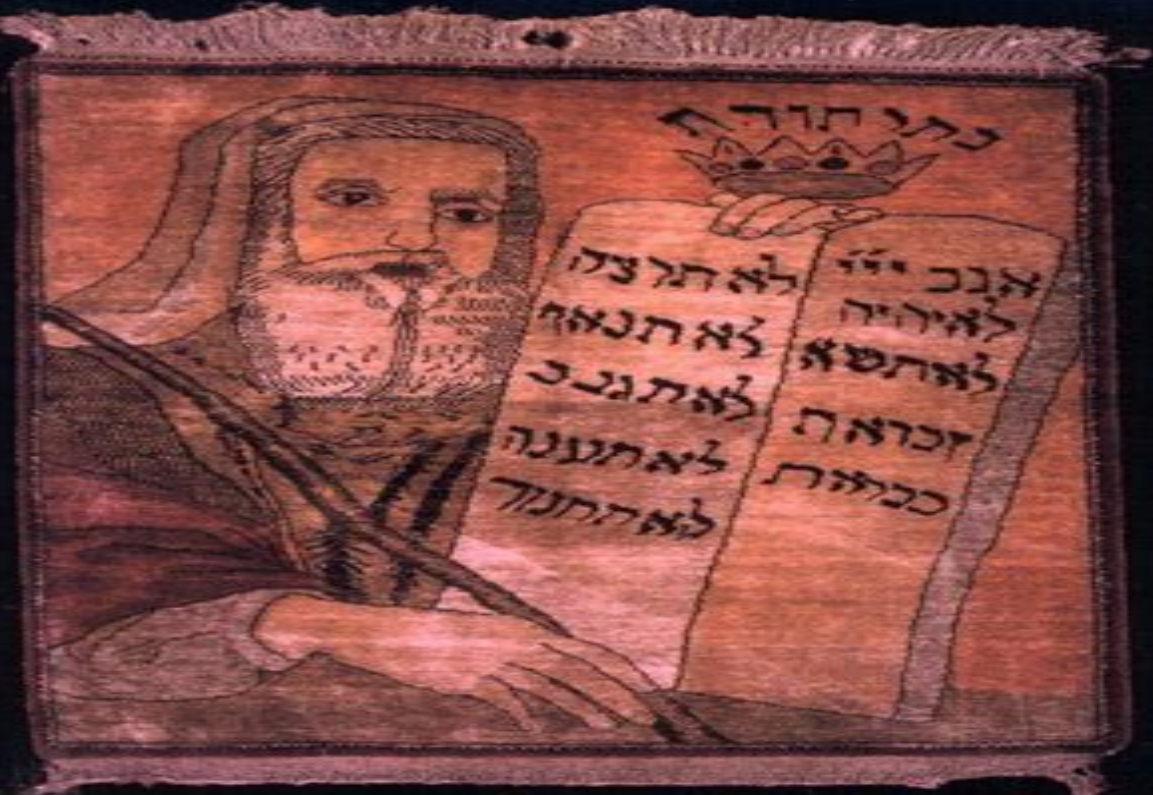 כתר תורה
אנכי ייי
לא יהיה
לא תשא
זכר את
כבד את
לא תרצח
לא תנאף
לא תגנב
לא תענה
לא תחמד